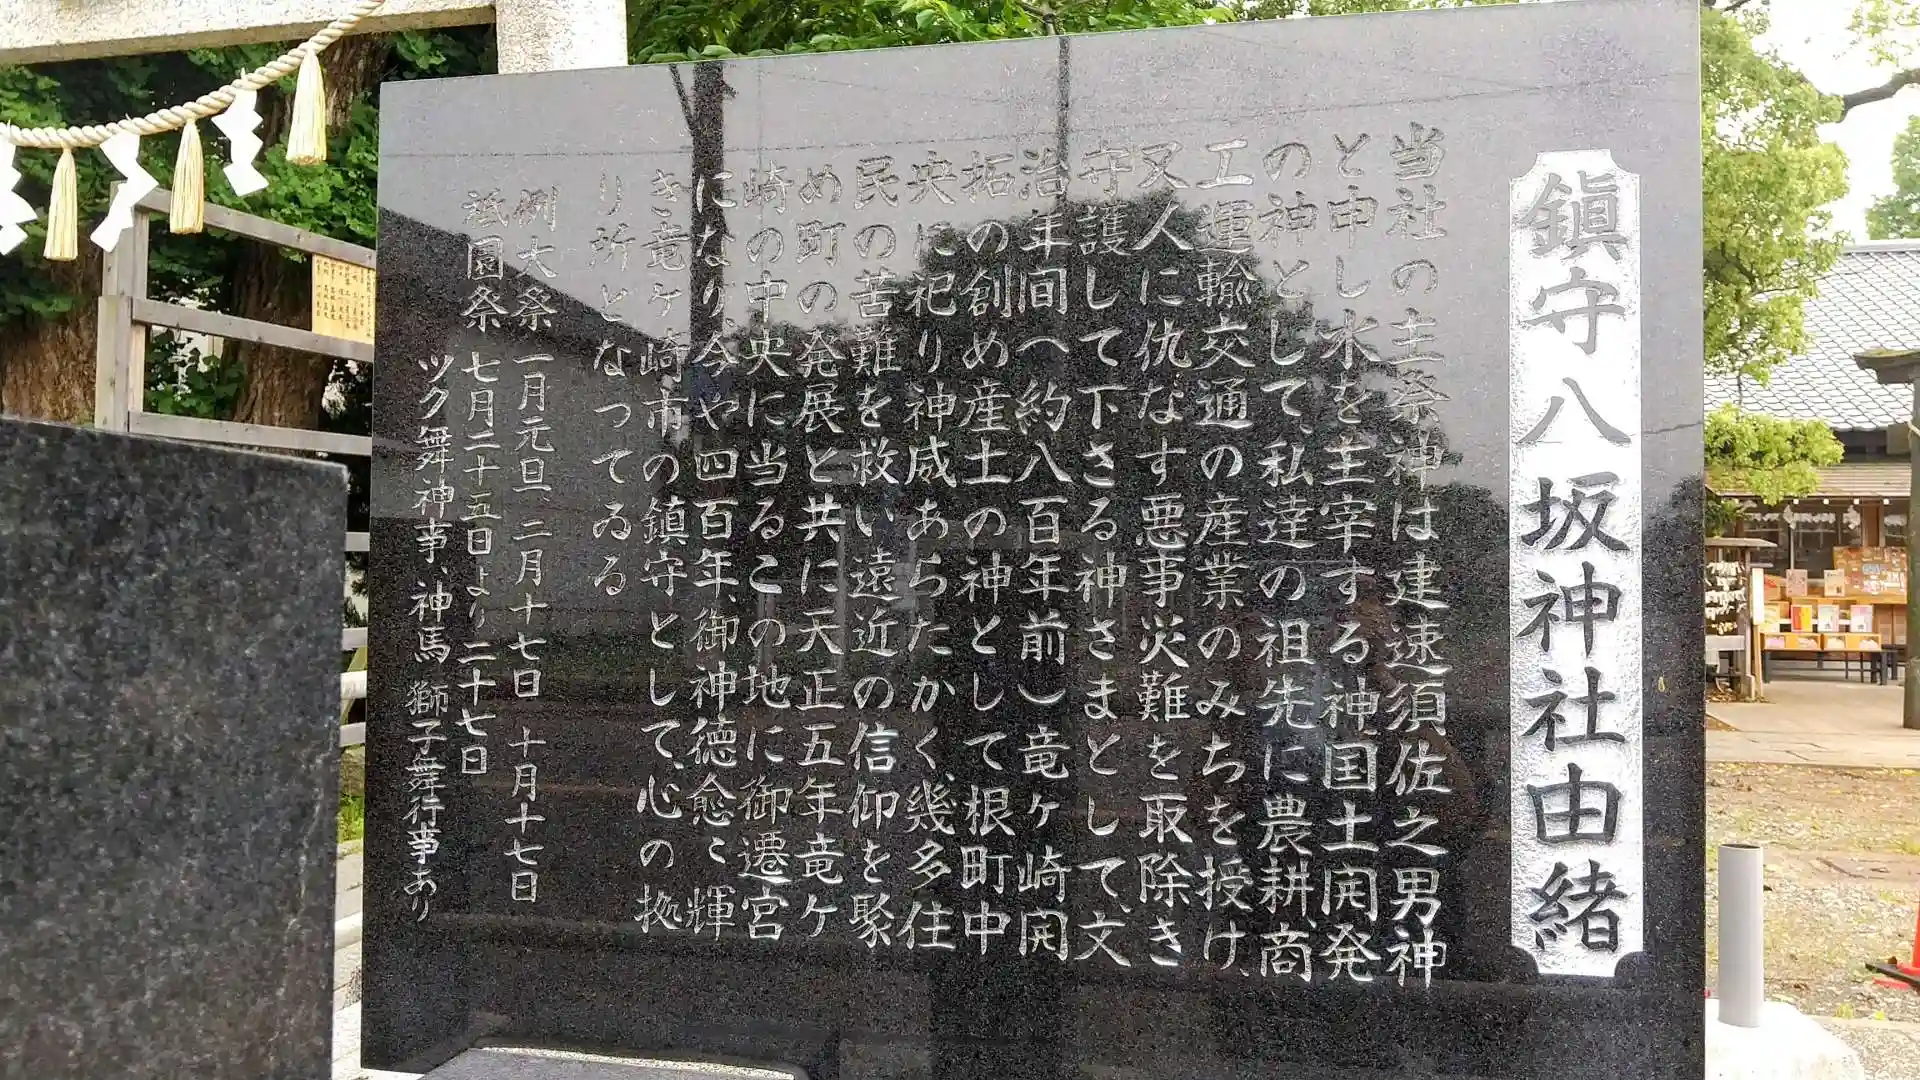 鎮守八坂神社由緒
当社の主祭神は建速須佐之男神
と申し水を主宰する神、国土開発
の神として、私達の祖先に農耕、商
工運輸交通の産業のみちを授け、
又人に仇なす悪事災難を取除き
守護して下さる神さまとして、文
治年間へ約八百年前)竜ヶ崎開
拓の創め産土の神として根町中
央に祀り神威あらたかく、幾多住
民の苦難を救い遠近の信仰を聚
め町の発展と共に天正五年竜ヶ
崎の中央に当るこの地に御遷宮
になり、今や四百年、御神徳愈々輝
き竜ヶ崎市の鎮守として、心の拠
り所となってゐる
例大祭 一月元旦、二月十七日 十月十七日
祗園祭 七月二十五日より二十七日
ツク舞神事、神馬 獅子舞行事あり